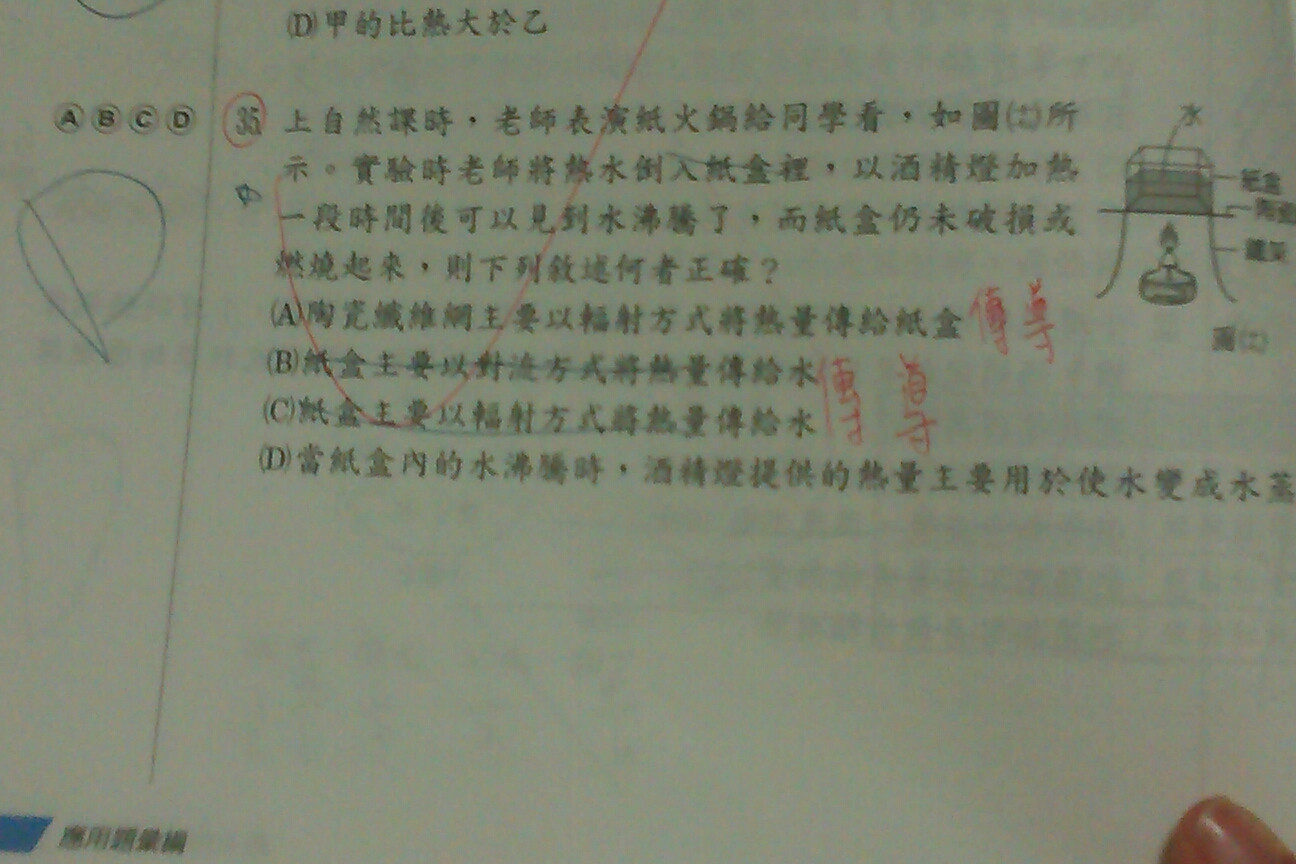 (D)甲的比熱大於乙
Ⓐ Ⓑ Ⓒ Ⓓ 35 上自然課時,老師表演紙火鍋給同學看,如圖㈩所
示。實驗時老師將熱水倒入紙盒裡,以酒精燈加熱
一段時間後可以見到水沸騰了,而紙盒仍未破損或
燃燒起來,則下列敘述何者正確?
(A)陶瓷纖維網主要以輻射方式將熱量傳給紙盒 傳導
(B)紙盒主要以對流方式將熱量傳給水
(C)紙盒主要以輻射方式將熱量傳給水 傳導
(D)當紙盒內的水沸騰時,酒精燈提供的熱量主要用於使水變成水蒸
水
紙盒
應用題彙編